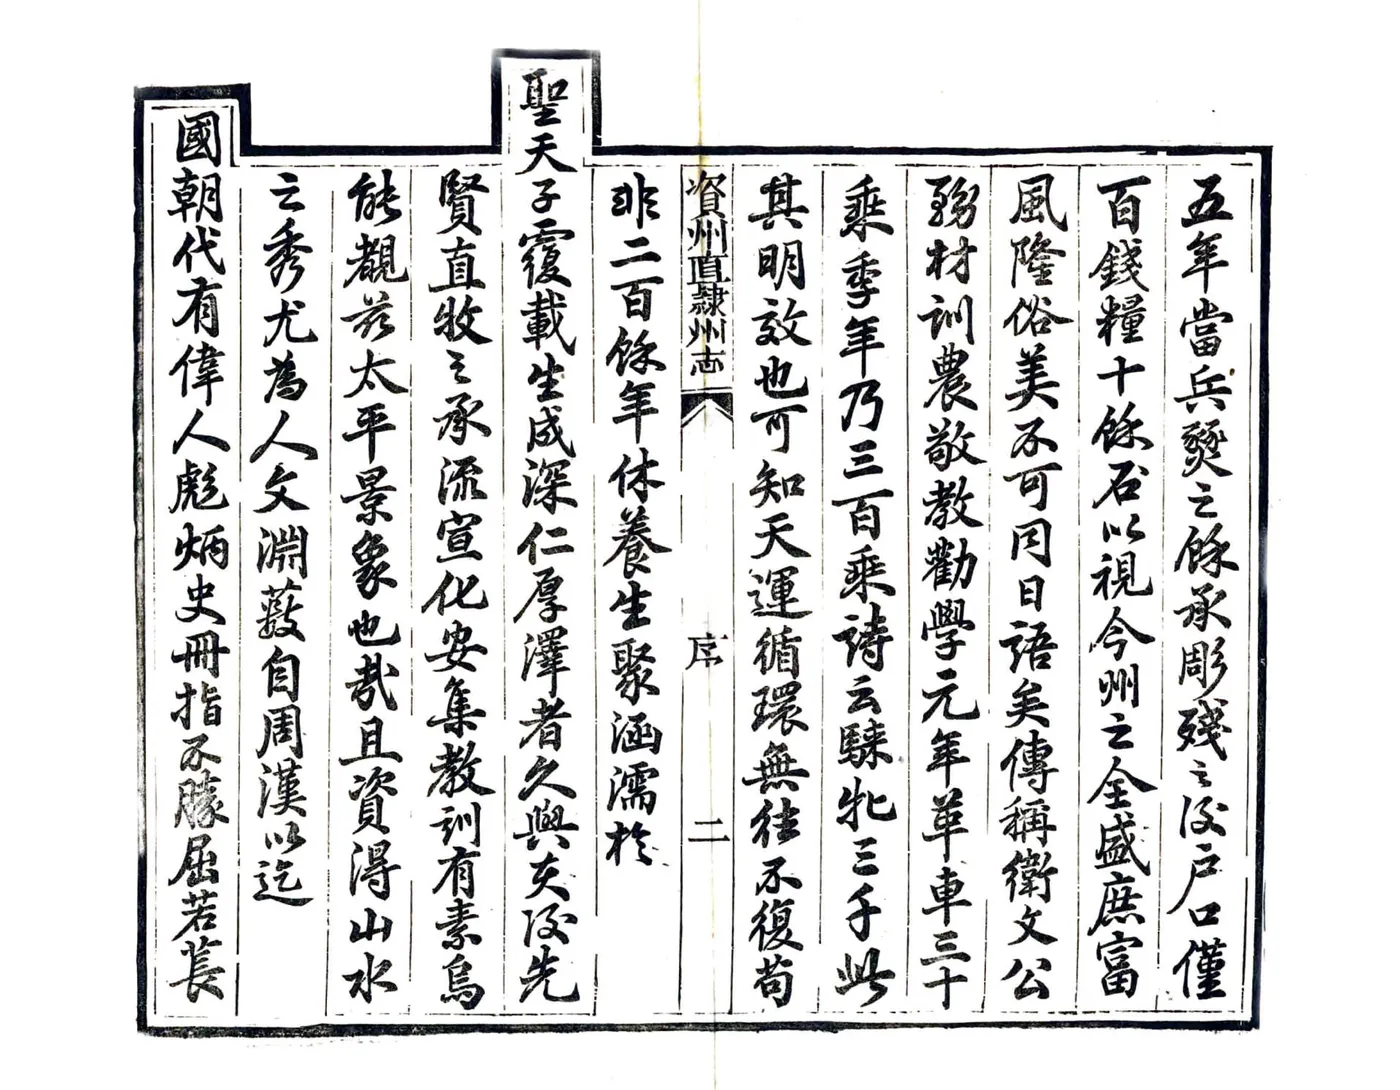 五年當兵燹之餘承彫殘之後户口僅
百錢糧十餘石以視今州之全盛庶富
風隆俗美不可同日語矣傳稱衛文公
務材訓農敬教勸學元年革車三十
乘季年乃三百乘詩云騋牝三千此
其明效也可知天運循環無往不復苟
資州直隸州志
序
二
非二百餘年休養生聚涵濡於
聖天子覆載生成深仁厚澤者久與夫後先
賢直牧之承流宣化安集教訓有素烏
能覩兹太平景象也哉且資得山水
之秀尤為人文淵藪自周漢以迄
國朝代有偉人彪炳史冊指不勝屈若萇